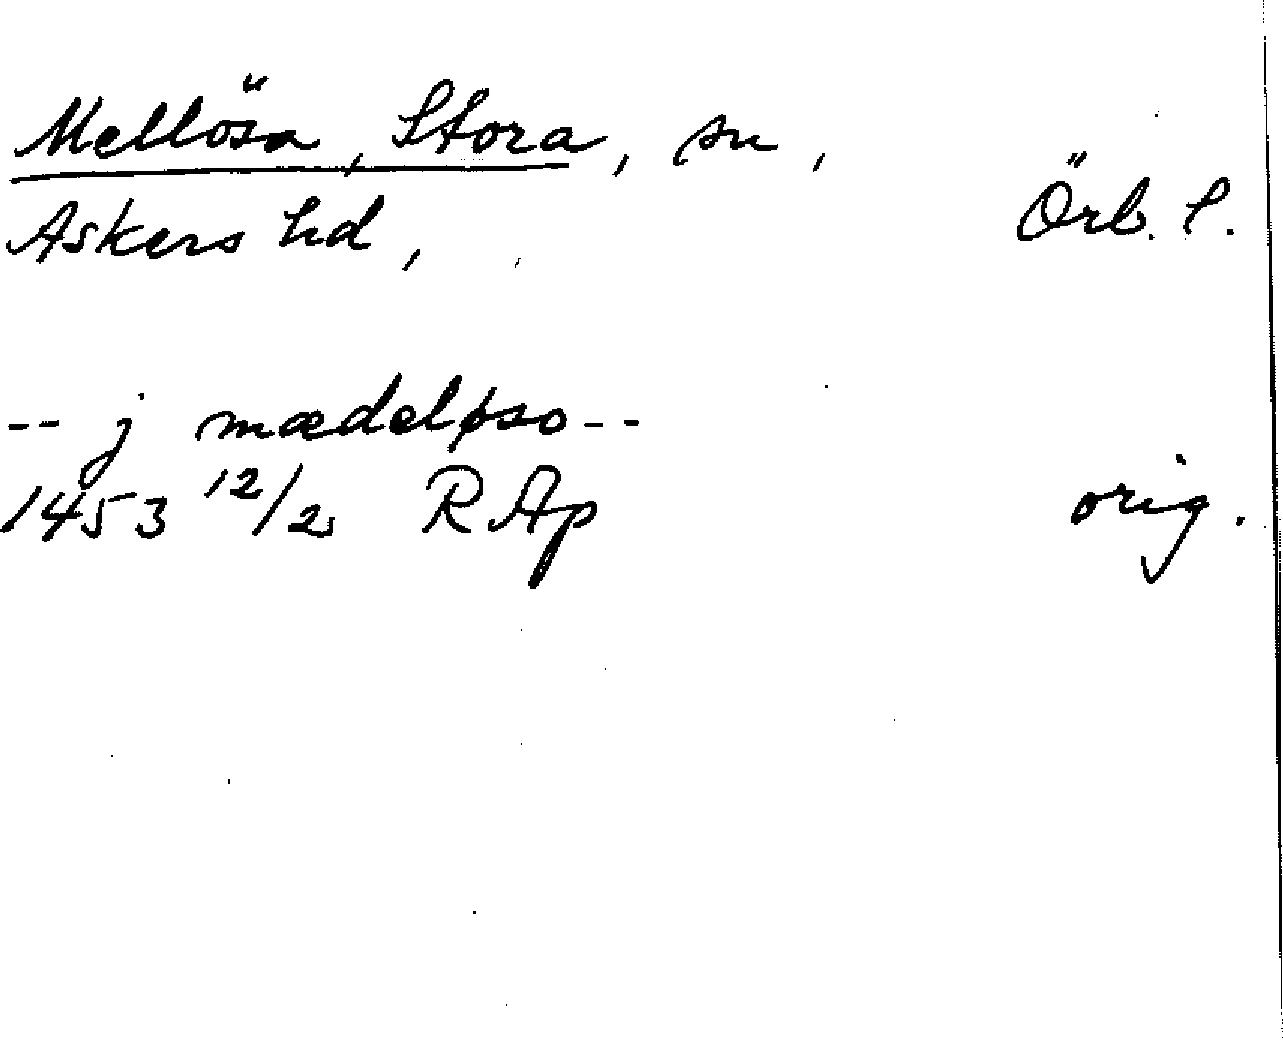 Mellösa, Stora, sn,
Askers hd, Örb. l.
-- j mædeløso --
1453 12/2 RAp orig.